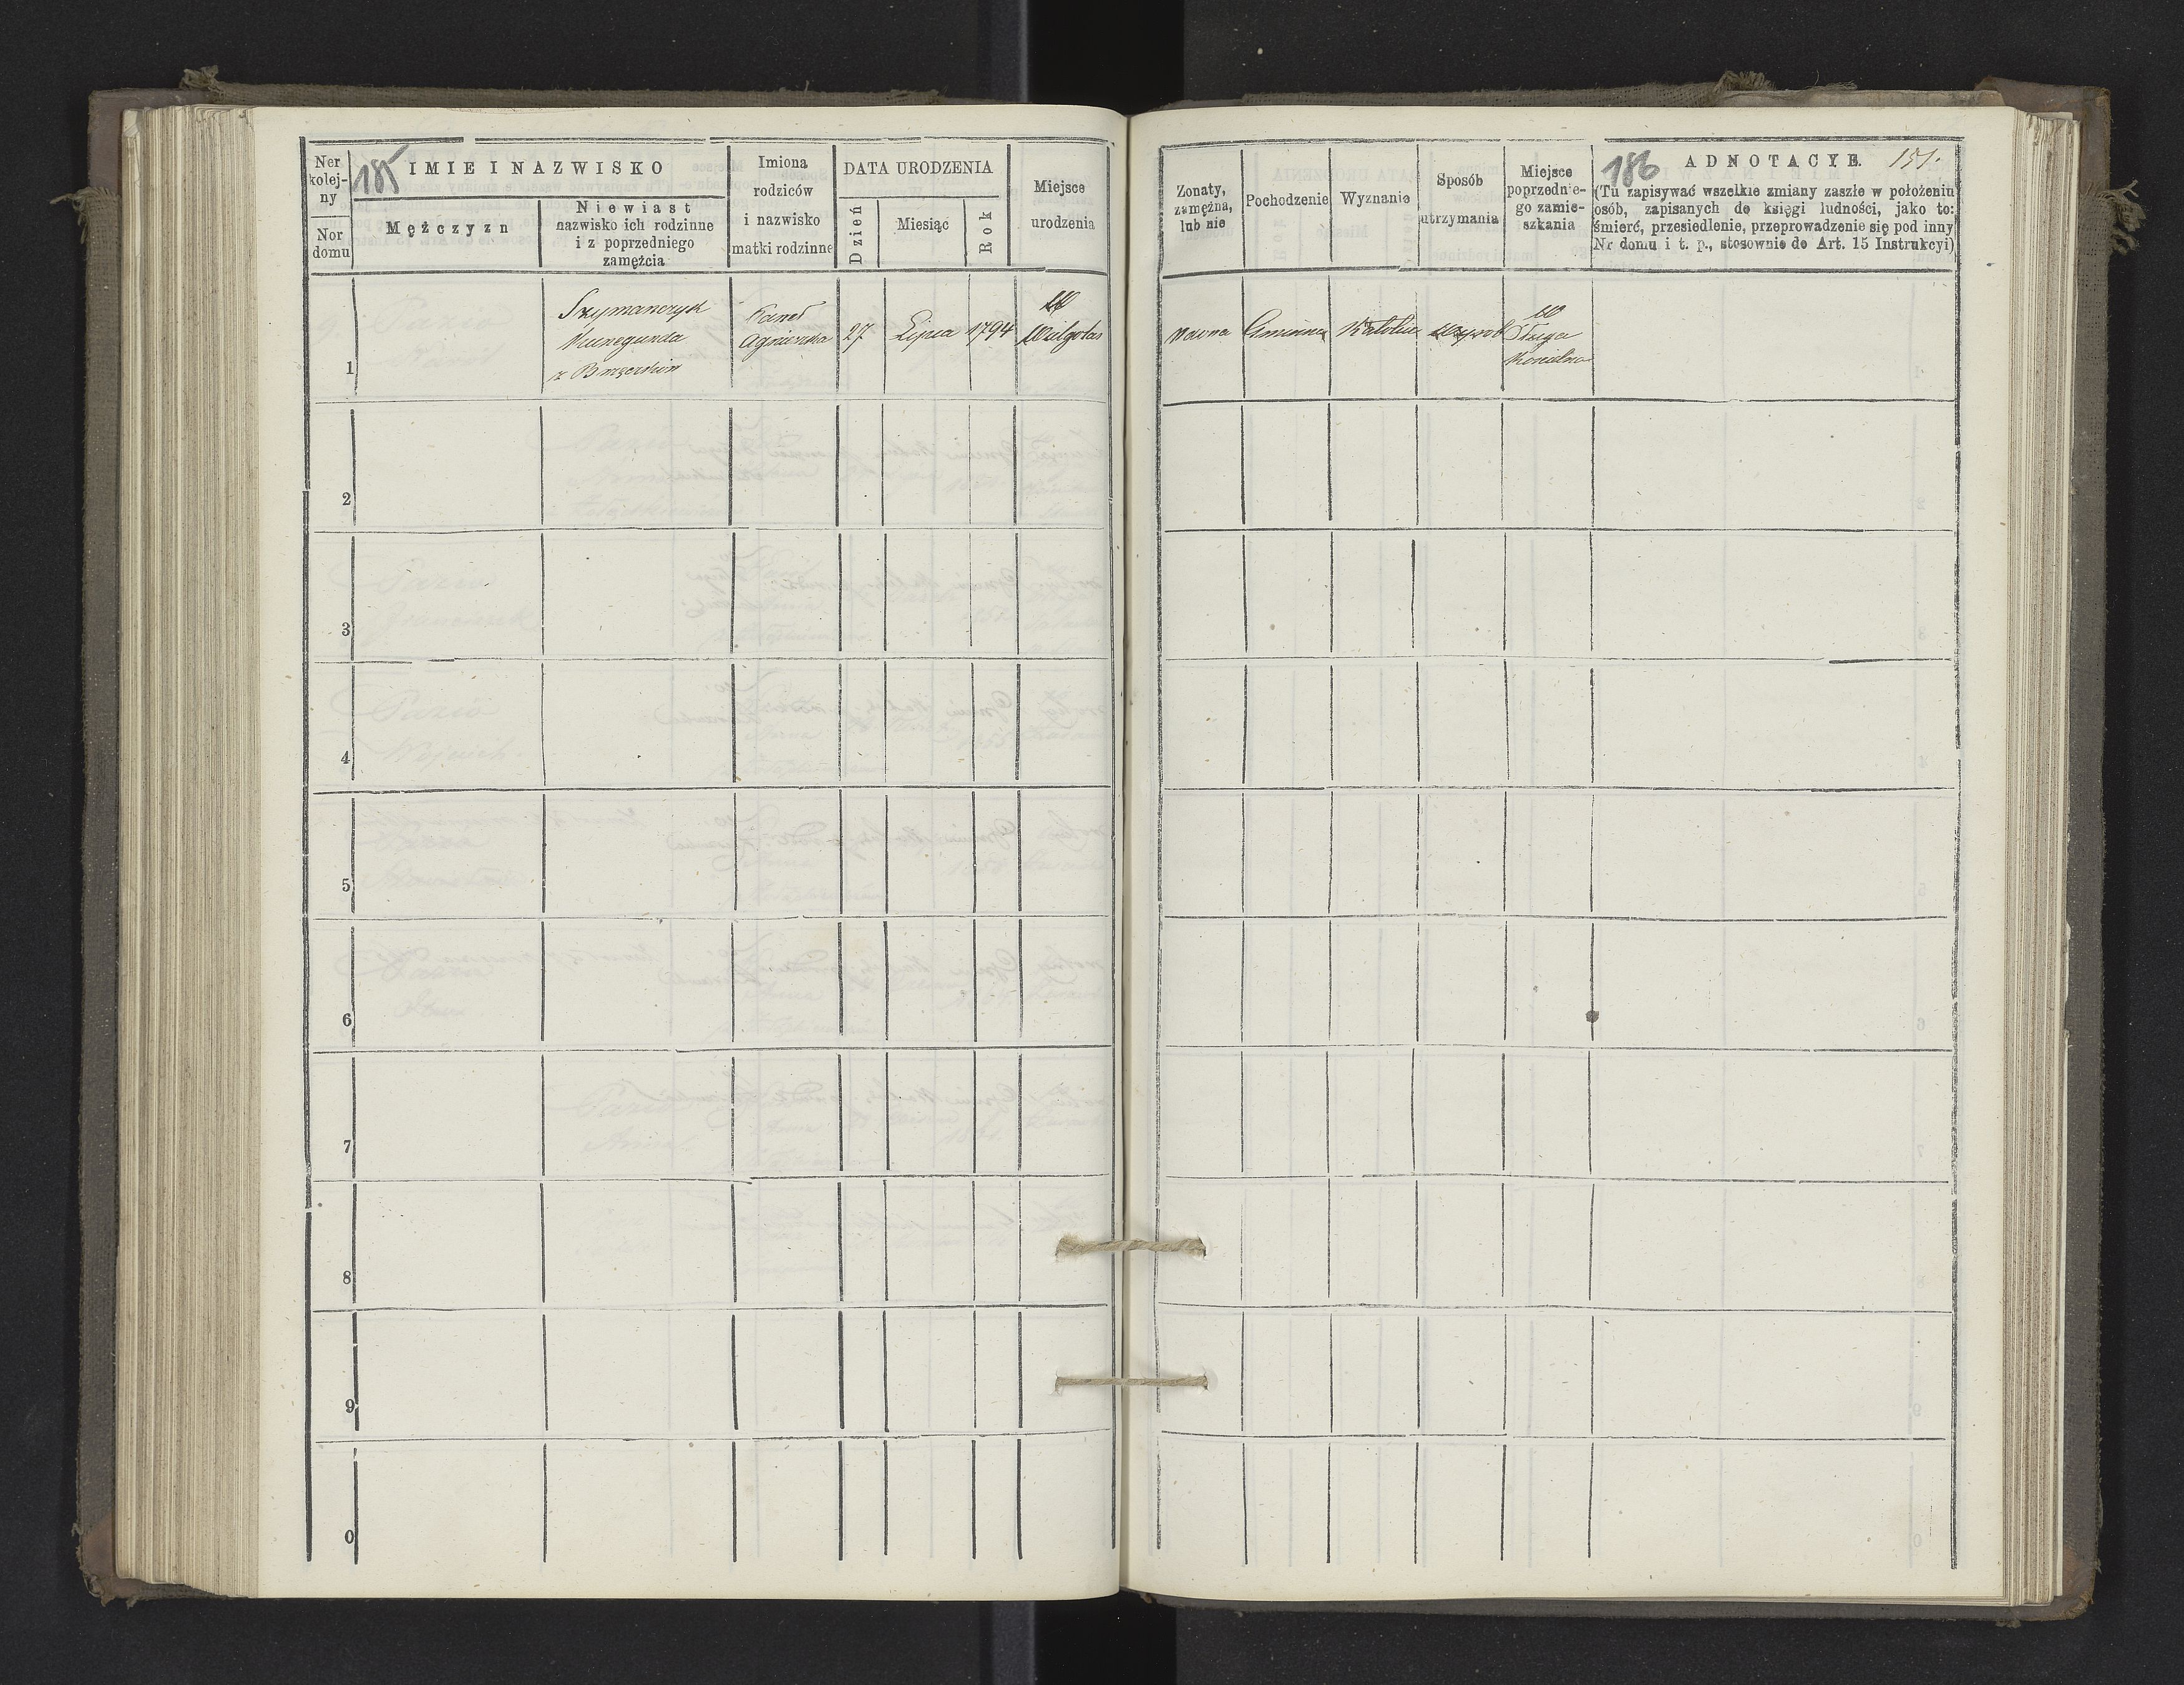 Ner
kolej-
ny
Nor
domu
185
IMIE I NAZWISKO
Mężczyzn
Niewiast
nazwisko ich rodzinne
i z poprzedniego
zamęźcia
Imiona
rodziców
i nazwisko
matki rodzinne
DATA URODZENIA
Dzień
Miesiąc
Rok
Miejsce
urodzenia
1
Szymanczyk
Kunegunda
z
Agnieszka
27
Lipca
1794
W
Wielgolas
2
3
4
5
6
7
8
9
0
Zonaty,
zamężna,
lub nie
Pochodzenie
Wyznanie
Sposób
utrzymania
Miejsce
poprzednie-
go zamie-
szkania
186
ADNOTACYE.
151.
(Tu zapisywać wszelkie zmiany zaszłe w położeniu
osób, zapisanych do księgi ludności, jako to:
śmierć, przesiedlenie, przeprowadzenie się pod inny
Nr domu i t. p., stosownie do Art. 15 Instrukcyi)
wdowa
Gminna
Katolic
W
Długa
Kościelna